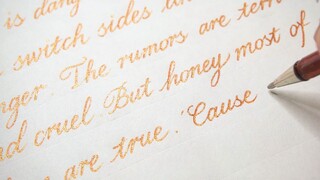 is dang
switch sides
nger. The rumors are terr
nd cruel. But honey most of
are true. 'Cause